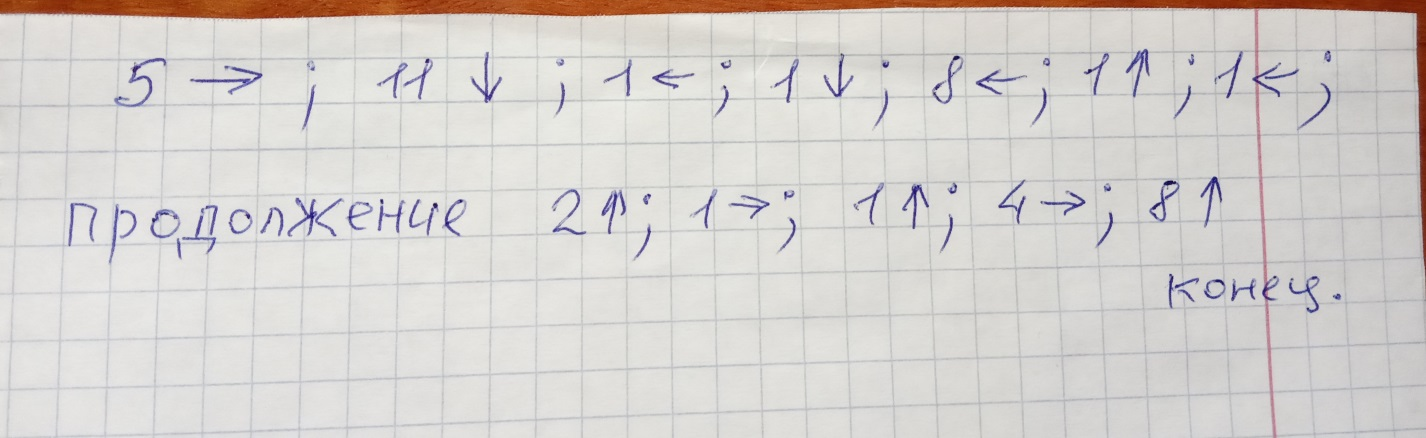 5 → ; 11 ↓ ; 1 ← ; 1 ↓ ; 8 ← ; 1 ↑ ; 1 ← ;
продолжение 2 ↑ ; 1 → ; 1 ↑ ; 4 → ; 8 ↑
конец.